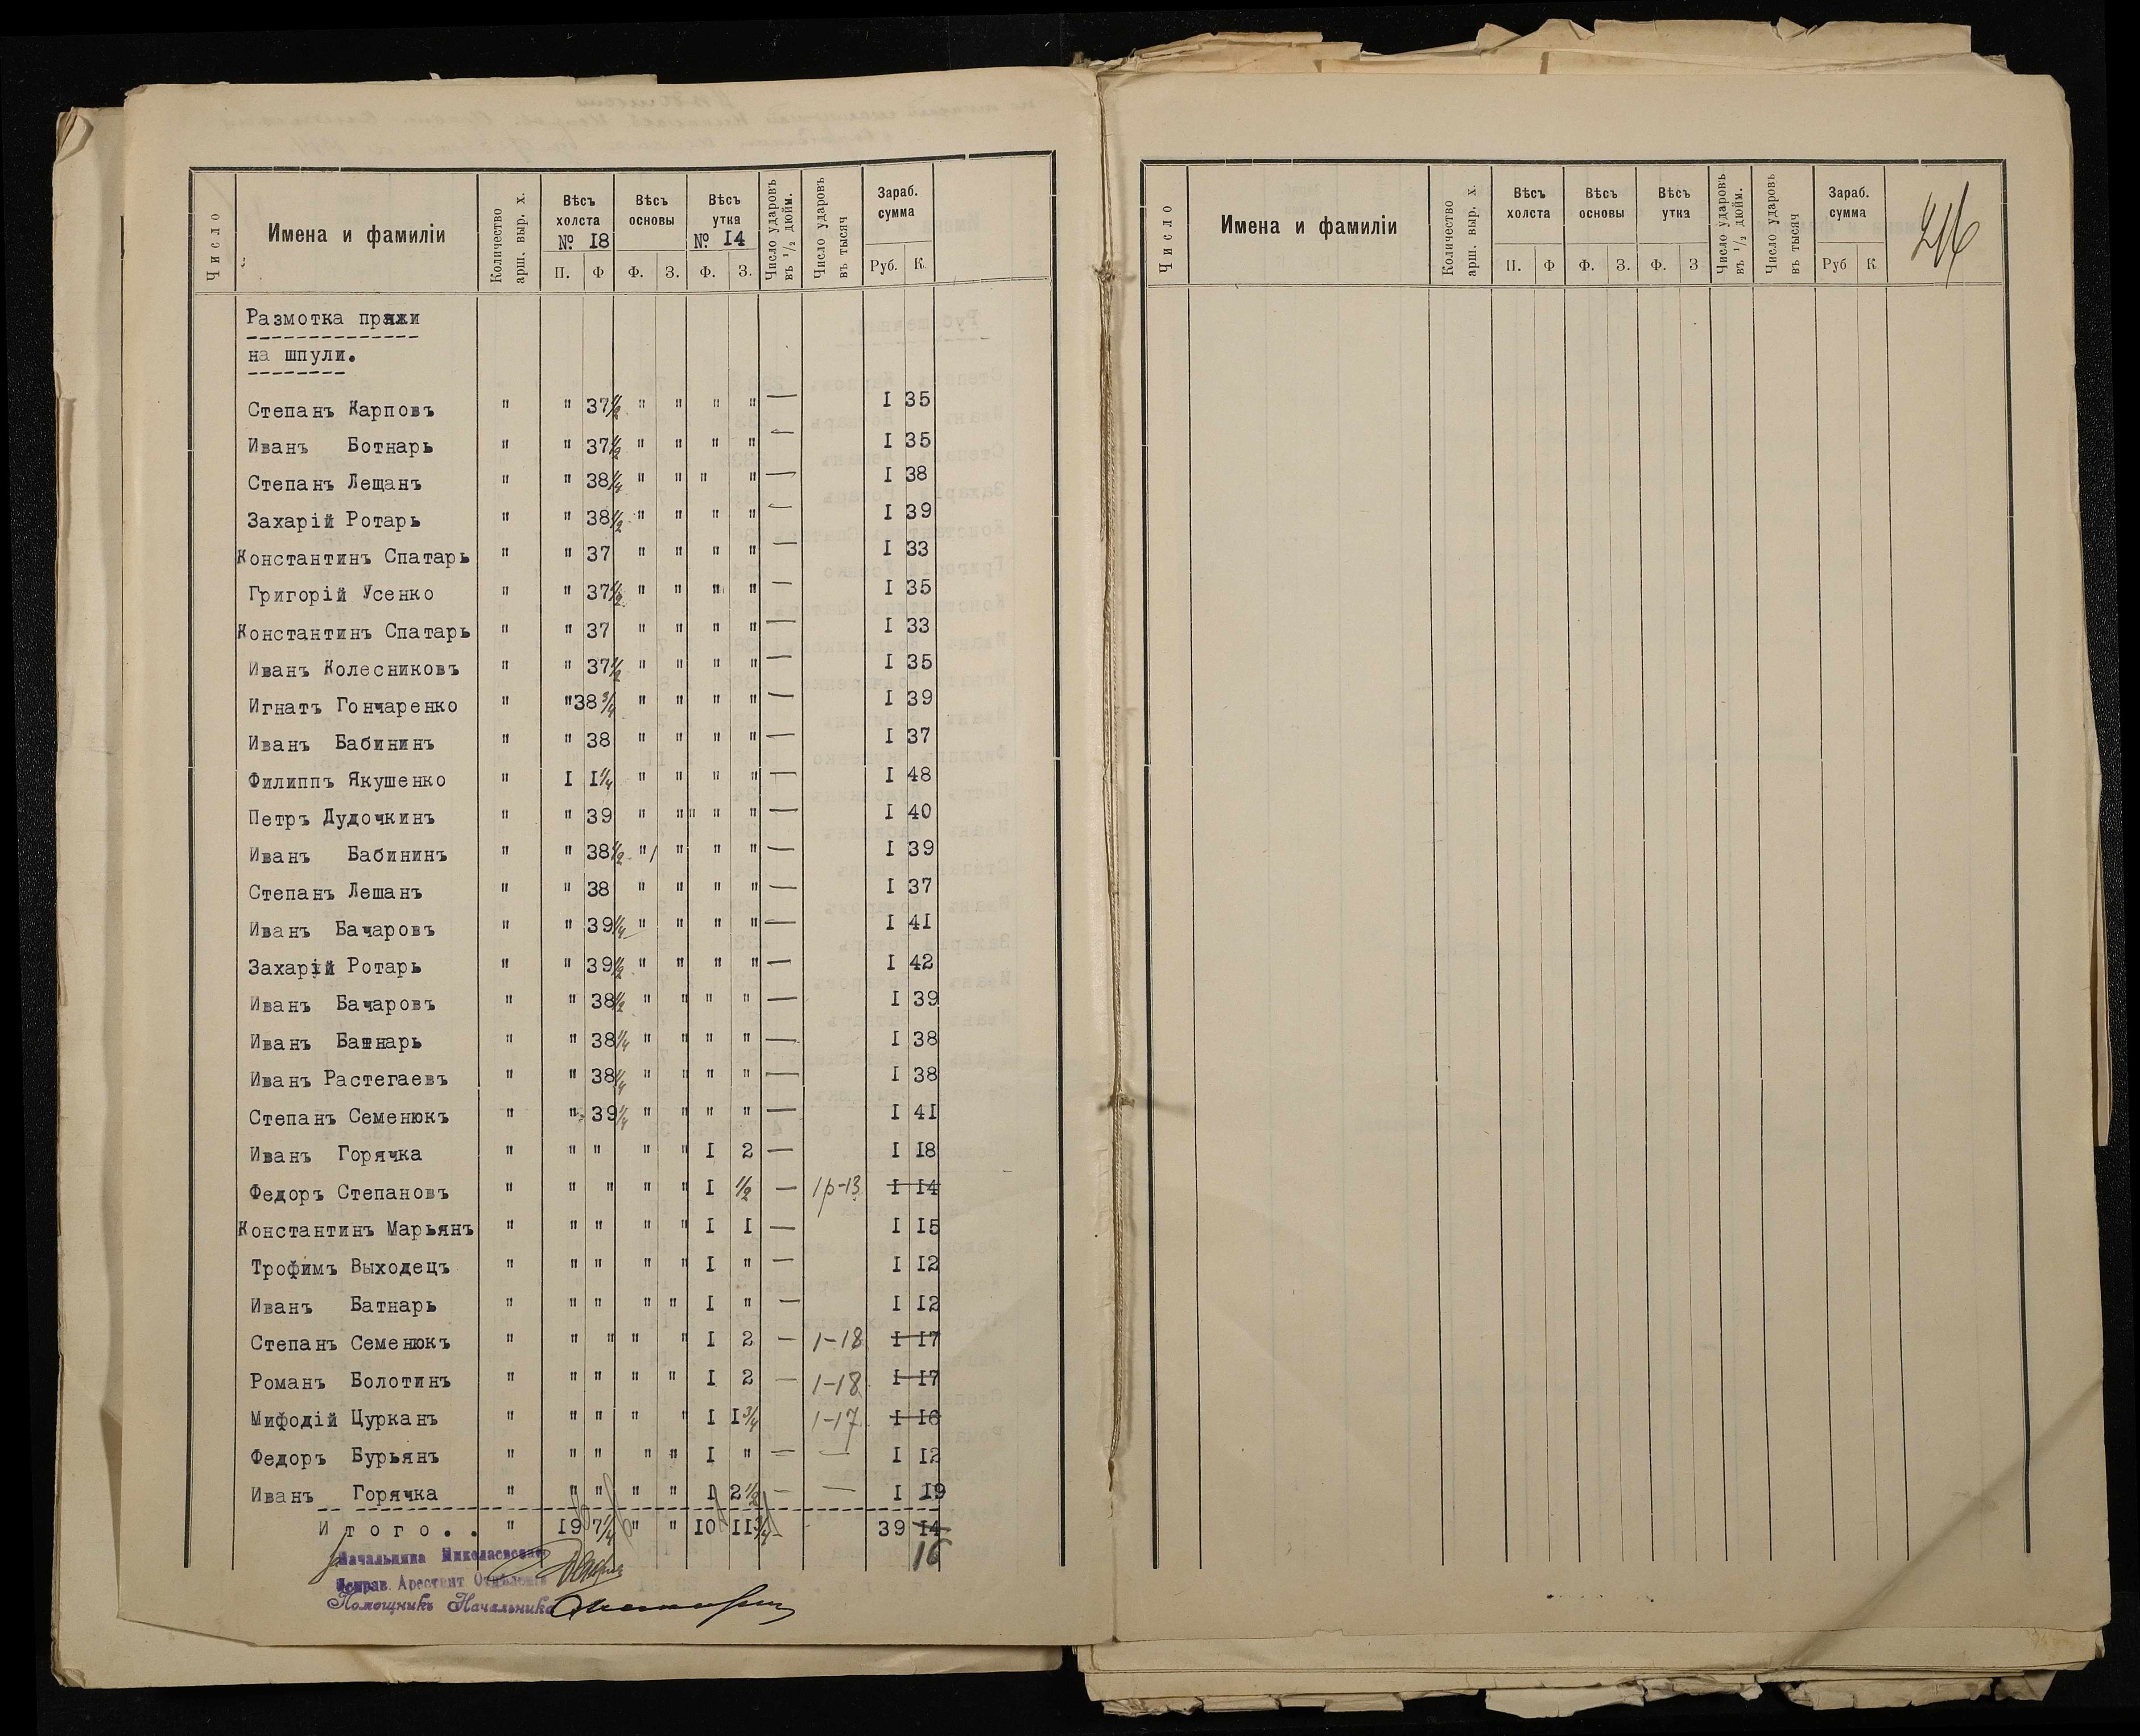 Число
Имена и фамиліи
Количество арш. выр. х.
Вѣсъ холста № 18
Вѣсъ основы
Вѣсъ утка № 14
Число ударовъ въ 1/2 дюйм.
Число ударовъ въ тысяч
Зараб. сумма
П. Ф Ф. З. Ф. З. Руб. К.
Размотка пряжи
на шпули.
Степанъ Карповъ " " 37 1/2 " " " " — I 35
Иванъ Ботнарь " " 37 1/2 " " " " — I 35
Степанъ Лещанъ " " 38 1/4 " " " " — I 38
Захарій Ротарь " " 38 1/2 " " " " — I 39
Константинъ Спатарь " " 37 " " " " — I 33
Григорій Усенко " " 37 1/2 " " " " — I 35
Константинъ Спатарь " " 37 " " " " — I 33
Иванъ Колесниковъ " " 37 1/2 " " " " — I 35
Игнатъ Гончаренко " " 38 3/4 " " " " — I 39
Иванъ Бабининъ " " 38 " " " " — I 37
Филиппъ Якушенко " I I 1/4 " " " " — I 48
Петръ Дудочкинъ " " 39 " " " " " — I 40
Иванъ Бабининъ " " 38 1/2 " " " " — I 39
Степанъ Лешанъ " " 38 " " " " — I 37
Иванъ Бачаровъ " " 39 1/4 " " " " — I 4I
Захарій Ротарь " " 39 1/2 " " " " — I 42
Иванъ Бачаровъ " " 38 1/2 " " " " — I 39
Иванъ Батнарь " " 38 1/4 " " " " — I 38
Иванъ Растегаевъ " " 38 1/4 " " " " — I 38
Степанъ Семенюкъ " " 39 1/4 " " " " — I 4I
Иванъ Горячка " " " " " I 2 — I I8
Федоръ Степановъ " " " " " I 1/2 — 1р-13 I I4
Константинъ Марьянъ " " " " " I I — I I5
Трофимъ Выходецъ " " " " " I " — I I2
Иванъ Батнарь " " " " " I " — I I2
Степанъ Семенюкъ " " " " " I 2 — 1-18 I I7
Романъ Болотинъ " " " " " I 2 — 1-18 I I7
Мифодій Цурканъ " " " " " I I 3/4 1-17 I I6
Федоръ Бурьянъ " " " " " I " — — I I2
Иванъ Горячка " " " " " I 2 1/2 — — I I9
Итого.. " I9 7 1/4 " " I0 II 3/4 — 39 I4
16
Начальника Николаевскаго
Исправ. Арестант Отдѣленія
Помощникъ Начальника
Число
Имена и фамиліи
Количество арш. выр. х.
Вѣсъ холста
Вѣсъ основы
Вѣсъ утка
Число ударовъ въ 1/2 дюйм.
Число ударовъ въ тысяч
Зараб. сумма
П. Ф Ф. З. Ф. З Руб К
216